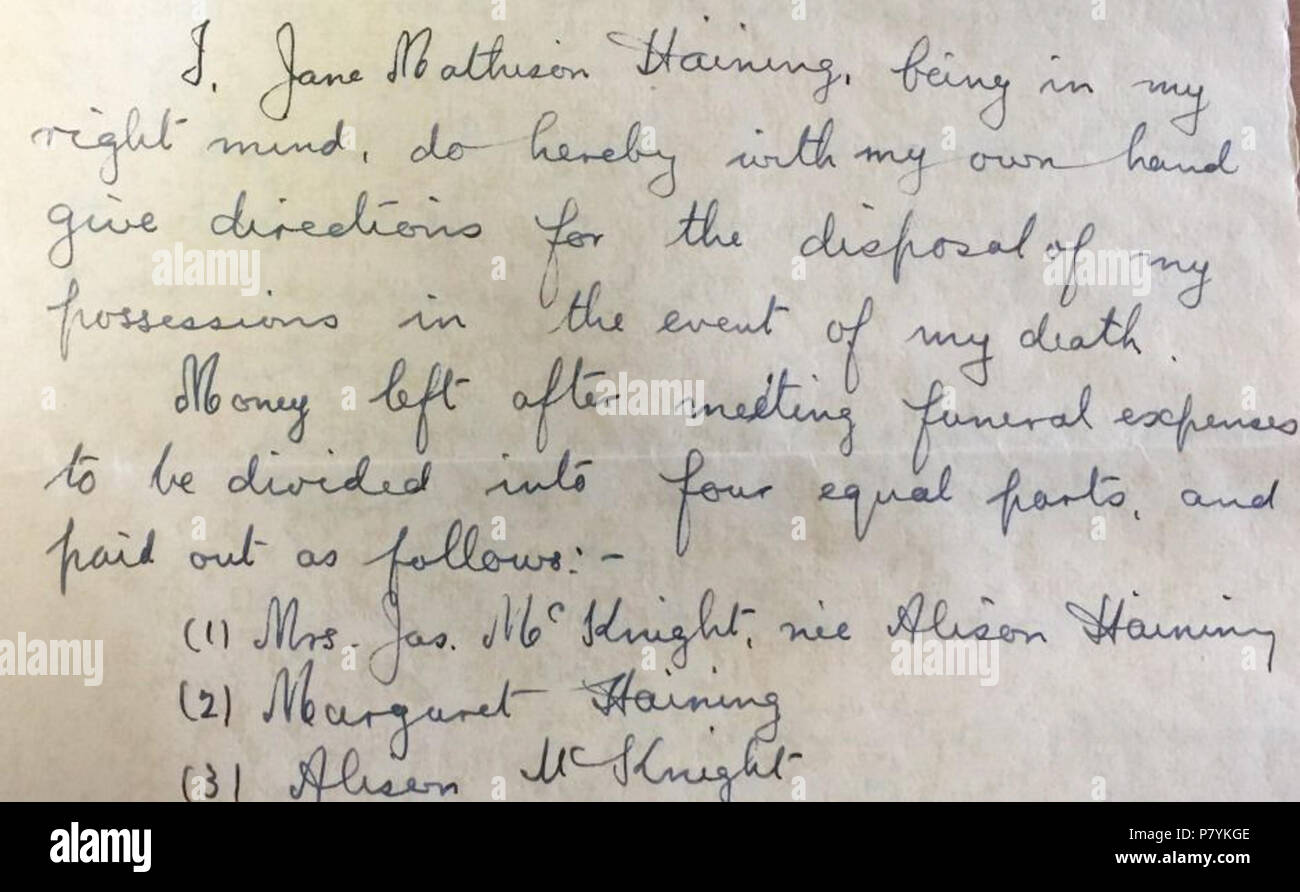 I, Jane Mathison Haining, being in my
right mind, do hereby with my own hand
give directions for the disposal of my
possessions in the event of my death.
Money left after meeting funeral expenses
to be divided into four equal parts, and
paid out as follows:-
(1) Mrs. Jas. McKnight, née Alison Haining
(2) Margaret Haining
(3) Alison McKnight
alamy
alamy
Image ID: P7YKGE
www.alamy.com